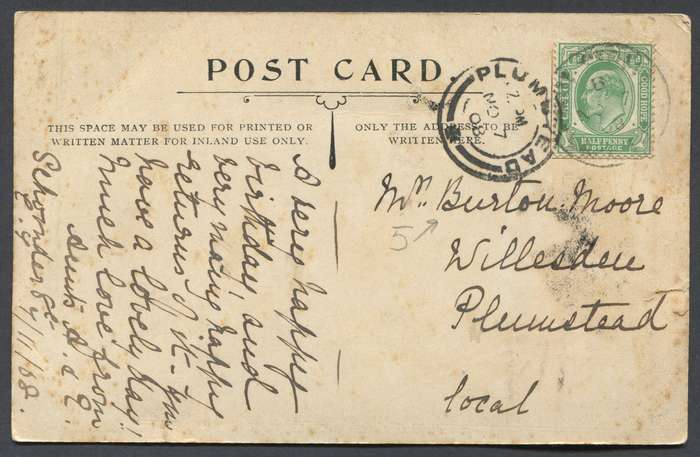 POST CARD.
THIS SPACE MAY BE USED FOR PRINTED OR
WRITTEN MATTER FOR INLAND USE ONLY.
ONLY THE ADDRESS TO BE
WRITTEN HERE.
PLUMSTEAD
2. PM
NO 7
08
GOOD HOPE
HALFPENNY
POSTAGE
A very happy
birthday, and
very many happy
returns of it. You
have a lovely day!
Much love from
Aunt
7/11/08.
Mrs Burton-Moore
5
Willesden
Plumstead
local